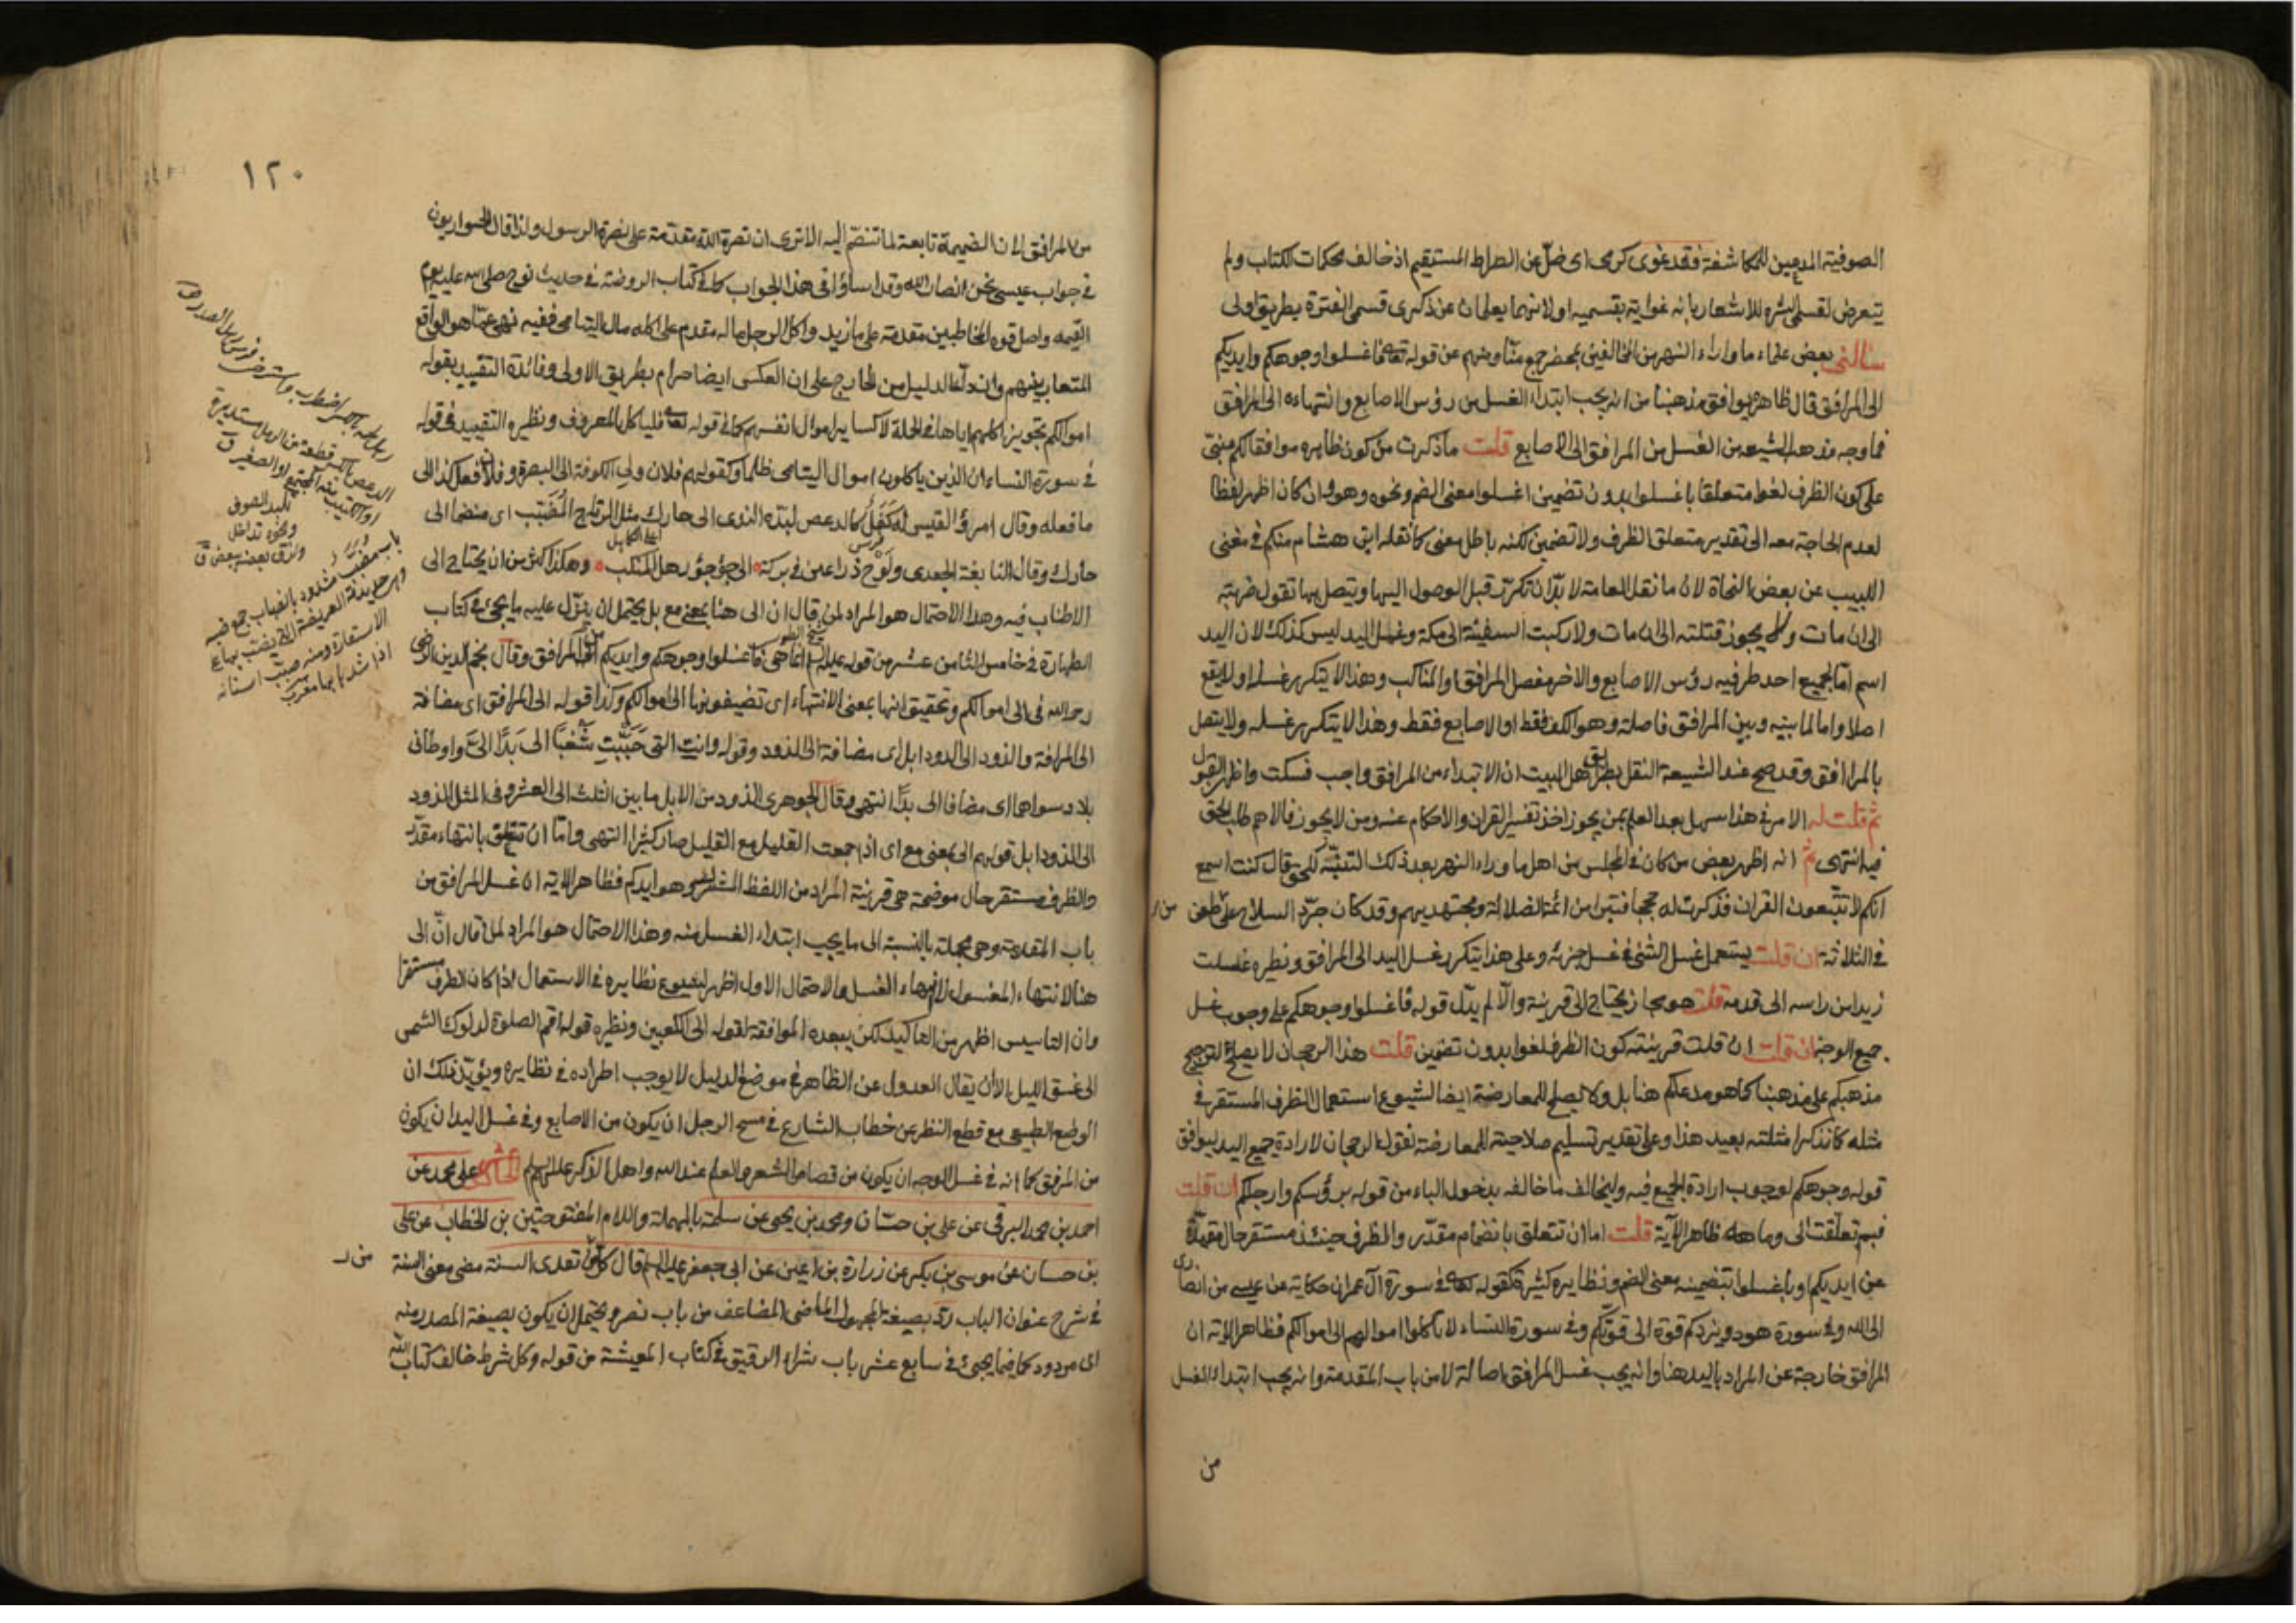 الصوفية المدعين للمكاشفة فقد غوى كرمى اى ضل عن الصراط المستقيم اذ خالف محكمات الكتاب ولم
يتعرض لقسمى الشره للاشعار بانه غواية بقسميه او لانهما يعلمان عن ذكرى قسمى الفترة بطريق اولى
سألنى بعض علماء ما وراء النهر من المخالفين بمحضر جمع منا ومنهم عن قوله تعالى فاغسلوا وجوهكم وايديكم
الى المرافق قال ظاهره يوافق مذهبنا من انه يجب ابتداء الغسل من رؤس الاصابع وانتهاءه الى المرافق
فما وجه مذهب الشيعه من الغسل من المرافق الى الاصابع قلت ما ذكرت من كون ظاهره موافقا لكم مبنى
على كون الظرف لغوا متعلقا باغسلوا بدون تضمين اغسلوا معنى الضم ونحوه وهو وان كان اظهر لفظا
لعدم الحاجة معه الى تقدير متعلق الظرف ولا تضمين لكنه باطل معنى كما نقله ابن هشام منكم فى مغنى
اللبيب عن بعض النحاة لان ما نقل العامة لا بد ان تكرر قبل الوصول اليها ويتصل بها تقول ضربته
الى ان مات ولا يجوز قتلته الى ان مات ولا ركبت السفينة الى مكة وغسل اليد ليس كذلك لان اليد
اسم اما لجميع احد طرفيه رؤس الاصابع والاخر مفصل المرافق او المناكب وهذا لا يتكرر غسله او لا يقع
اصلا واما لما بينه وبين المرافق فاصلة وهو الكف فقط او الاصابع فقط وهذا لا يتكرر غسله ولا يتصل
بالمرافق وقد صح عند الشيعة النقل بطرق اهل البيت ان الابتداء من المرافق واجب فسكت واظهر القبول
ثم قلت له الامر فى هذا سهل بعد العلم بمن يجوز اخذ تفسير القران والاحكام عنه ومن لا يجوز فالاهم طلب الحق
فيه انتهى ثم انه اظهر بعض من كان فى المجلس من اهل ما وراء النهر بعد ذلك التنبه للحق وقال كنت اسمع
انكم لا تتبعون القران فذكرت له حججا فتبرا من ائمة الضلالة ومجتهديهم وقد كان جرد السلاح على طعن
فى الثلاثة ان قلت يستعمل غسل الشئ فى غسل جزئه وعلى هذا يتكرر غسل اليد الى المرافق ونظيره غسلت
زيدا من راسه الى قدمه قلت هو مجاز يحتاج الى قرينة والا لم يدل قوله فاغسلوا وجوهكم على وجوب غسل
جميع الوجه ان قلت ان قلت قرينته كون الظرف لغوا بدون تضمين قلت هذا الرجحان لا يصلح لترجيح
مذهبكم على مذهبنا كما هو مدعاكم هنا بل ولا يصلح للمعارضة ايضا لشيوع استعمال الظرف المستقر فى
مثله كما نذكر امثلته بعيد هذا وعلى تقدير تسليم صلاحيته للمعارضة نقول الرجحان لارادة جميع اليد ليوافق
قوله وجوهكم لوجوب ارادة الجميع فيه وليخالف ما خالفه بدخول الباء من قوله برؤسكم وارجلكم ان قلت
فبم تعلقت الى وما هو ظاهر الاية قلت اما ان تتعلق بانضمام مقدر والظرف حينئذ مستقر حال مقيدة
عن ايديكم او باغسلوا بتضمينه معنى الضم ونظايره كثيرة كقوله تعالى فى سورة آل عمران حكاية عن عيسى من انصارى
الى الله وفى سورة هود ويزدكم قوة الى قوتكم وفى سورة النساء لا تاكلوا اموالهم الى اموالكم فظاهر الاية ان
المرافق خارجة عن المراد باليد هنا وانه يجب غسل المرافق اصالة لا من باب المقدمة وانه يجب ابتداء الغسل
من
١٢٠
من المرافق لان الضميمة تابعة لما تنضم اليه الا ترى ان نصرة الله مقدمة على نصرة الرسول ولذا قال الحواريون
فى جواب عيسى نحن انصار الله وقد اساؤا فى هذا الجواب كما فى كتاب الروضة فى حديث نوح صلى الله عليه يوم
القيمه واصل قوة المخاطبين مقدمة على ما زيد واكل الرجل ماله مقدم على اكله مال اليتامى ففيه نهى عما هو الواقع
المتعارف بينهم وانه الدليل من خارج على ان العكس ايضا حرام بطريق الاولى وفائدة التقييد بقوله
اموالكم تجويز اكلهم اياها فى الجملة لا كساير اموال انفسهم كما فى قوله تعالى فلياكل بالمعروف ونظيره التقييد فى قوله
فى سورة النساء ان الذين ياكلون اموال اليتامى ظلما وكقولهم فلان ولى الكوفة الى البصرة وفلان فعل كذا الى
ما فعله وقال امرؤ القيس له كفل كالدعص لبده الندى الى حارك مثل الرتاج المضبب اى منضما الى
حارك وقال النابغة الجعدى ولوح ذراعين فى بركة الى جؤجؤ رهل المنكب وهكذا اكثر من ان يحتاج الى
الاطناب فيه وهذا الاحتمال هو المراد لمن قال ان الى هنا بمعنى مع بل يحتمل ان ينزل عليه ما يجئ فى كتاب
الطهارة فى خامس الثامن عشر من قوله عليه السلم انما هى فاغسلوا وجوهكم وايديكم من المرافق وقال نجم الدين الرضى
رحمه الله فى الى اموالكم وتحقيق انها بمعنى الانتهاء اى تضيفونها الى اموالكم وكذا قوله الى المرافق اى مضافة
الى المرافق والذود الى الذود ابل اى مضافة الى الذود وقوله وانت التى حببت شغبا الى بدا الى واوطانى
بلاد سواهما اى مضافا الى بدا انتهى وقال الجوهرى الذود من الابل ما بين الثلث الى العشر وفى المثل الذود
الى الذود ابل قولهم الى بمعنى مع اى اذا جمعت القليل مع القليل صار كثيرا انتهى واما ان تتعلق بانتهاء مقدر
والظرف مستقر حال موضحة هى قرينة المراد من اللفظ المشترك وهو ايديكم فظاهر الاية ان غسل المرافق من
باب المقدمة وهى مجملة بالنسبة الى ما يجب ابتداء الغسل منه وهذا الاحتمال هو المراد لمن قال ان الى
هنا لانتهاء المغسول لا لانتهاء الغسل والاحتمال الاول اظهر لشيوع نظايره فى الاستعمال اذا كان الظرف مستقرا
وان التاسيس اظهر من التاكيد لكن يبعده الموافقة لقوله الى الكعبين ونظيره قوله اقم الصلوة لدلوك الشمس
الى غسق الليل الا ان يقال العدول عن الظاهر فى موضع لدليل لا يوجب اطراده فى نظايره ويؤيد ذلك ان
الوضع الطبيعى مع قطع النظر عن خطاب الشارع فى مسح الرجل ان يكون من الاصابع وفى غسل اليد ان يكون
من المرفق كما انه فى غسل الوجه ان يكون من قصاص الشعر والعلم عند الله واهل الذكر عليهم السلم على محمد عن
احمد بن محمد البرقى عن على بن حسان ومحمد بن يحيى عن سلمة بالمهملة واللام المفتوحتين بن الخطاب عن على
بن حسان عن موسى بن بكر عن زرارة بن اعين عن ابى جعفر عليه السلم قال كل من تعدى السنة مضى معنى السنة
فى شرح عنوان الباب رد بصيغة المجهول الماضى المضاعف من باب نصر ويحتمل ان يكون بصيغة المصدر منه
اى مردود كما فيما يجئ فى سابع عشر باب شراء الرقيق فى كتاب المعيشة من قوله وكل شرط خالف كتاب الله